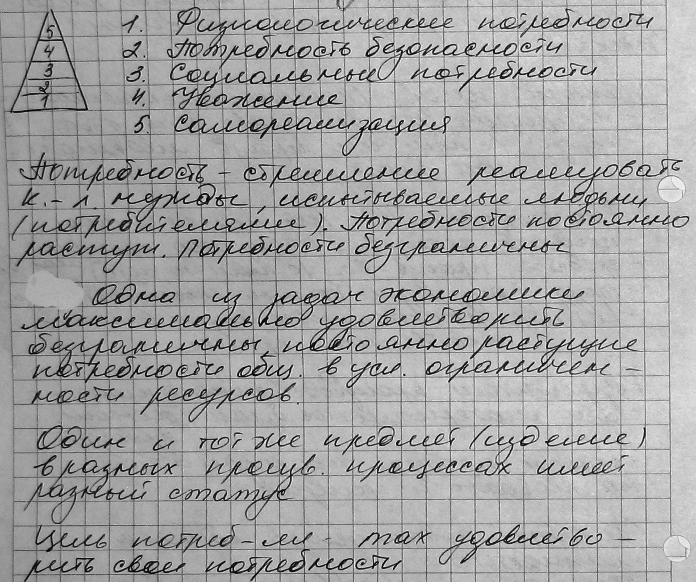 5
4
3
2
1
1. Физиологические потребности
2. Потребность безопасности
3. Социальные потребности
4. Уважение
5. Самореализация
Потребность – стремление реализовать
к.-л. нужды, испытываемые людьми
(потребителями). Потребности постоянно
растут. Потребности безграничны
Одна из задач экономики
максимально удовлетворить
безграничны, постоянно растущие
потребности общ. в усл. ограничен –
ности ресурсов.
Один и тот же предмет (изделие)
в разных произв. процессах имеет
разный статус
Цель потреб-ля - max удовлетво –
рить свои потребности